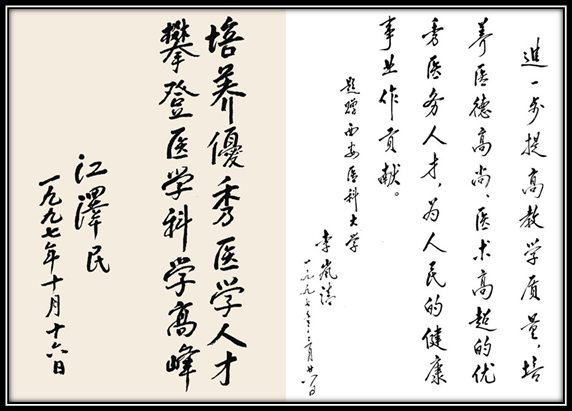 培养優秀医学人才
攀登医学科学高峰
江澤民
一九九七年十月十六日
進一步提高教学质量，培
养医德高尚、医术高超的优
秀医务人才，为人民的健康
事业作贡献。
题赠西安医科大学
李岚清
一九九七年